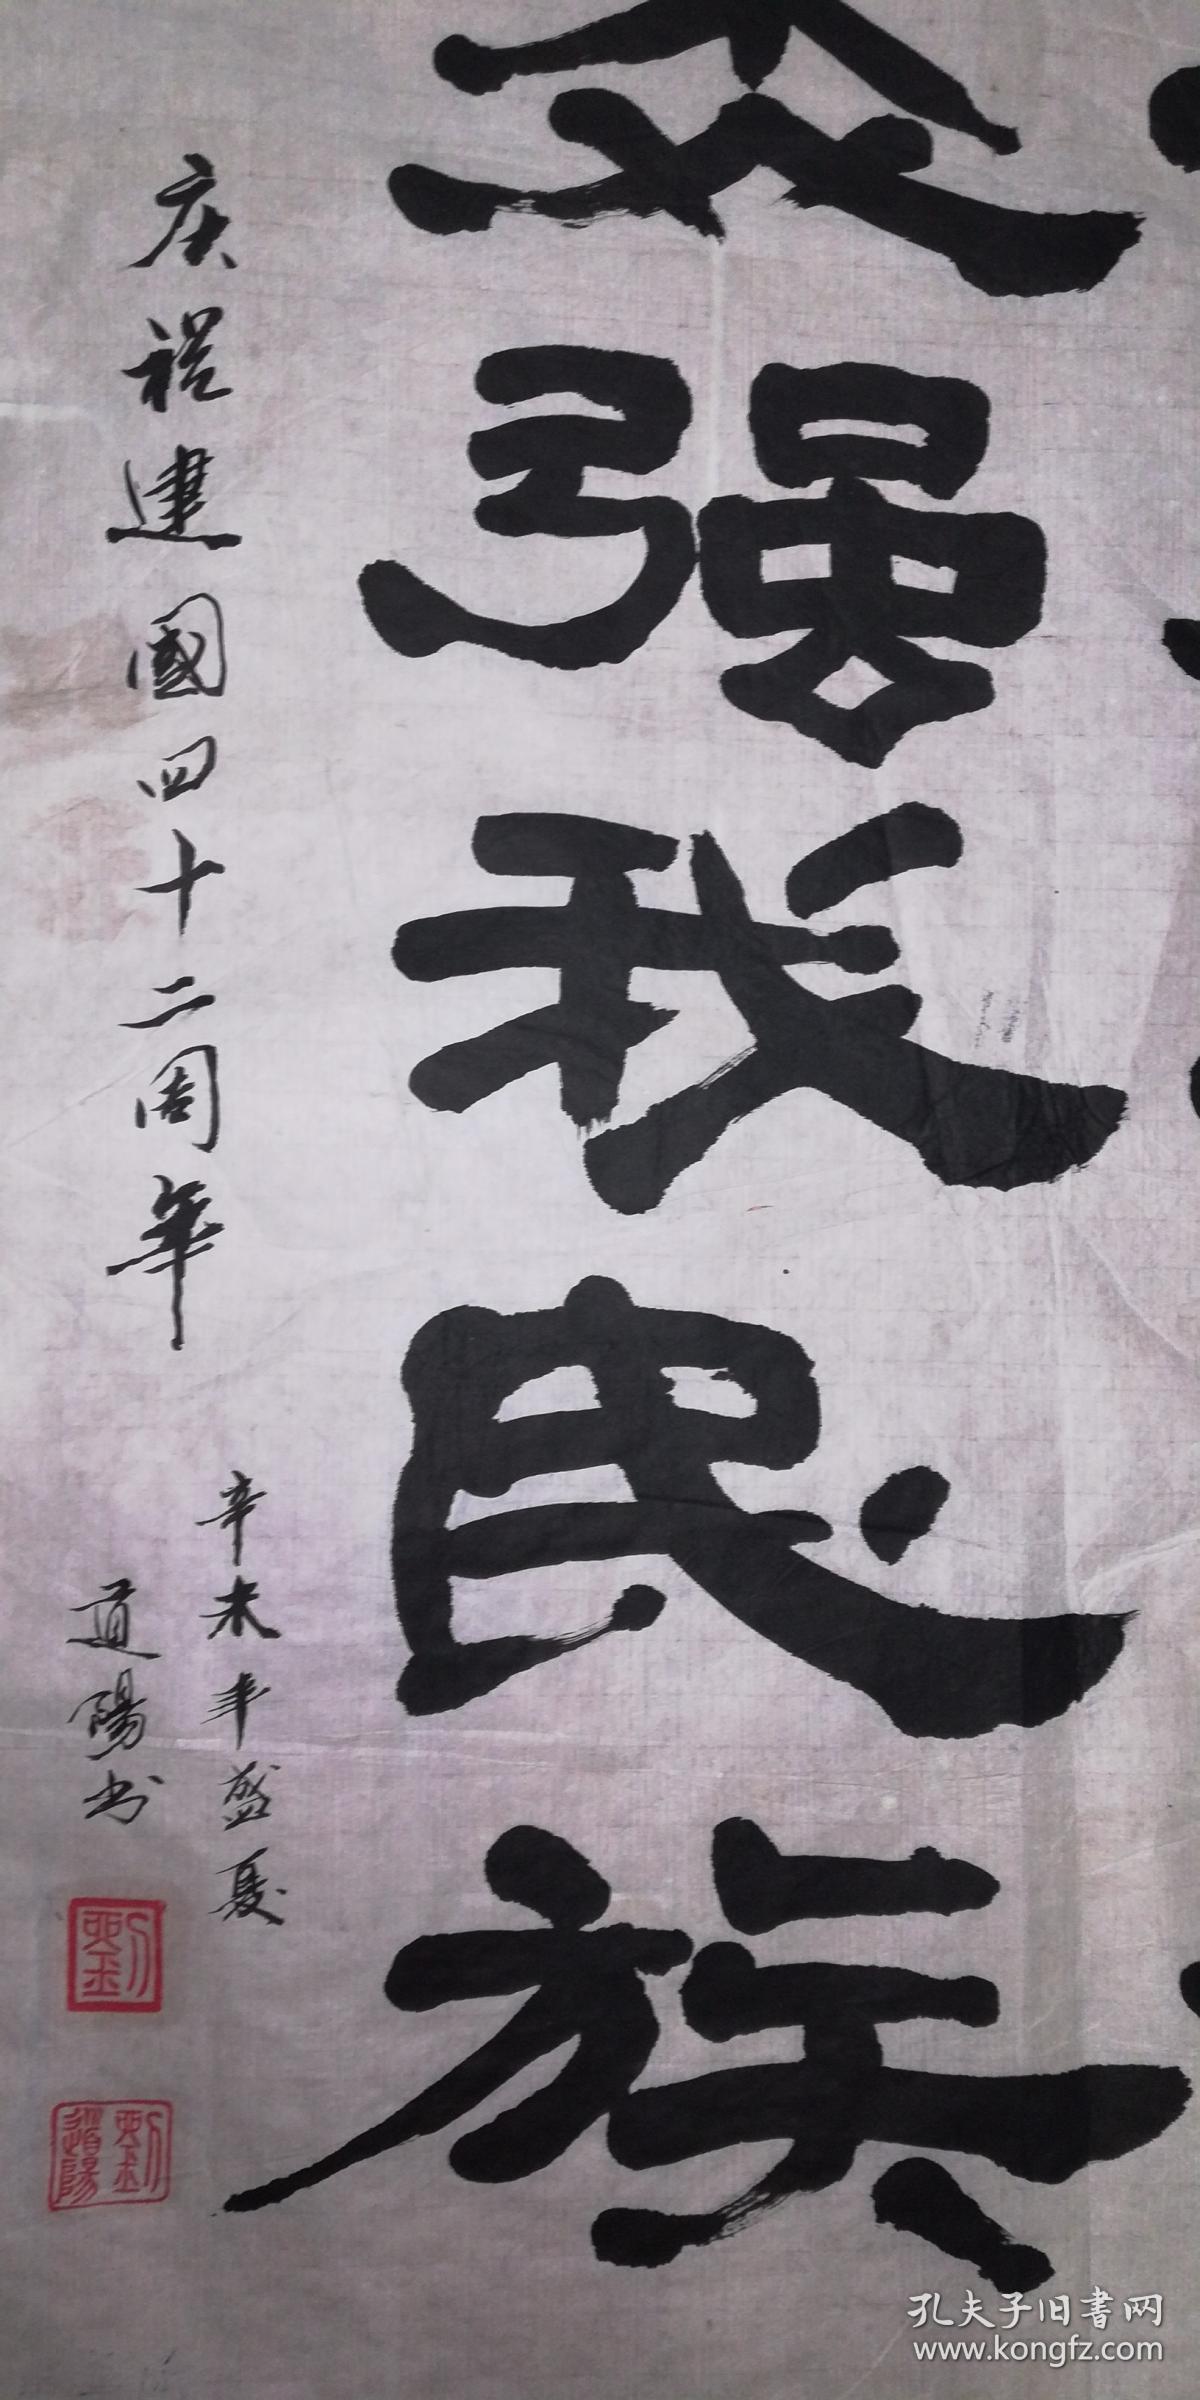 强我民族
庆祝建國四十二周年
辛未年盛夏
道陽书
劉
劉道陽
孔夫子旧書网
www.kongfz.com